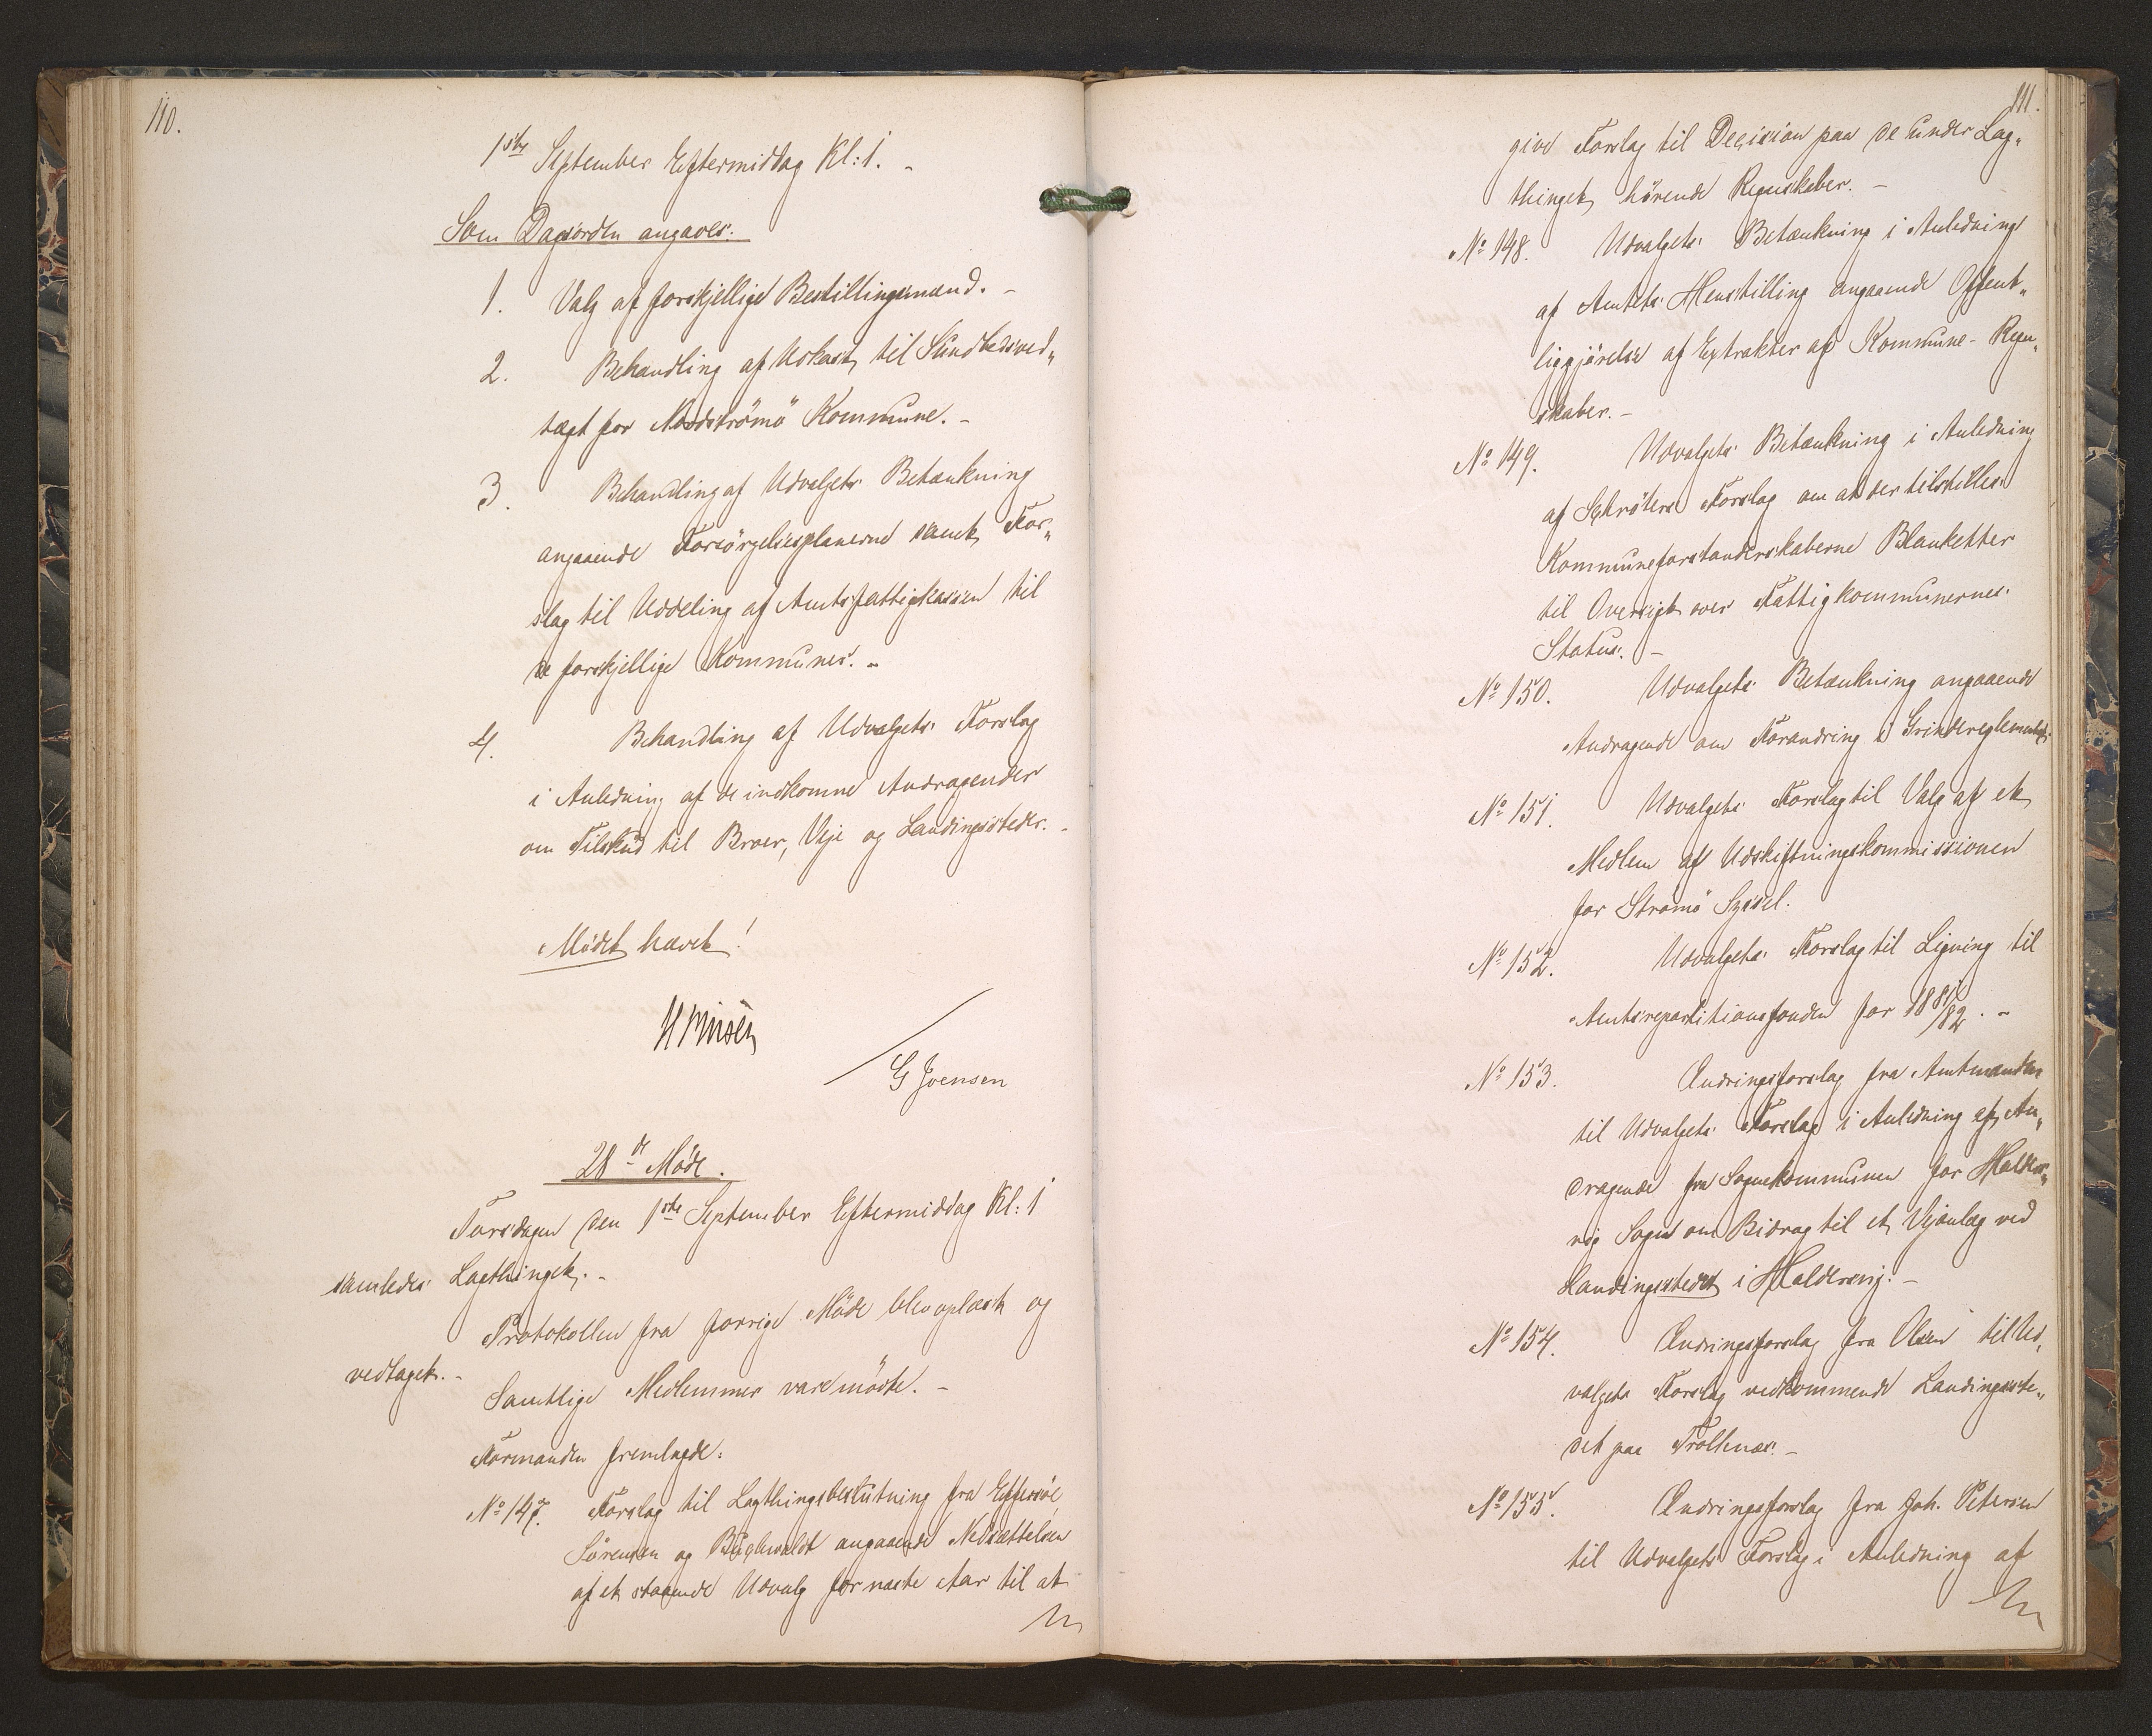 110.
1ste September Eftermiddag Kl: 1. -
Som Dagsorden angaves:
1. Valg af forskjellige Bestillingsmænd. -
2. Behandling af Udkast til Sundhedsved„
tægt for Nordströmö Kommune. -
3. Behandling af Udvalgets Betænkning
angaaende Forsörgelsesplanerne samt For„
slag til Uddeling af Amtsfattigkassen til
de forskjellige Kommuner. -
4. Behandling af Udvalgets Forslag
i Anledning af de indkomne Andragender
om Tilskud til Broer, Veje og Landingssteder. -
Mödet hævet!
H Finsen
G Joensen
28de Möde.
Torsdagen den 1ste September Eftermiddag Kl: 1
samledes Lagthinget. -
Protokollen fra forrige Möde blev oplæst og
vedtaget. -
Samtlige Medlemmer vare mödte. -
Formanden fremlagde:
No 147. Forslag til Lagthingsbeslutning fra Effersöe,
Sörensen og Buchwaldt angaaende Nedsættelsen
af et staaende Udvalg for næste Aar til at
111.
give Forslag til Decision paa de under Lag„
thinget hörende Regnskaber. -
No 148. Udvalgets Betænkning i Anledning
af Amtets Henstilling angaaende Offent„
liggjörelse af Extrakter af Kommune-Regn„
skaber. -
No 149. Udvalgets Betænkning i Anledning
af Schröters Forslag om at der tilstilles
Kommuneforstanderskaberne Blanketter
til Oversigt over Fattigkommunernes
Status. -
No 150. Udvalgets Betænkning angaaende
Andragende om Forandring i Grindereglementet.
No 151. Udvalgets Forslag til Valg af et
Medlem af Udskiftningskommissionen
for Strömö Syssel.
No 152. Udvalgets Forslag til Ligning til
Amtsrepartitionsfonden for 1881/82. -
No 153. Ændringsforslag fra Amtmanden
til Udvalgets Forslag i Anledning af An„
dragende fra Sognekommunen for Halders„
vig Sogn om Bidrag til et Vejanlæg ved
Landingsstedet i Haldersvig. -
No 154. Ændringsforslag fra Olsen til Ud„
valgets Forslag vedkommende Landingsste„
det paa Trollenæs. -
No 155. Ændringsforslag fra Joh. Petersen
til Udvalgets Forslag i Anledning af